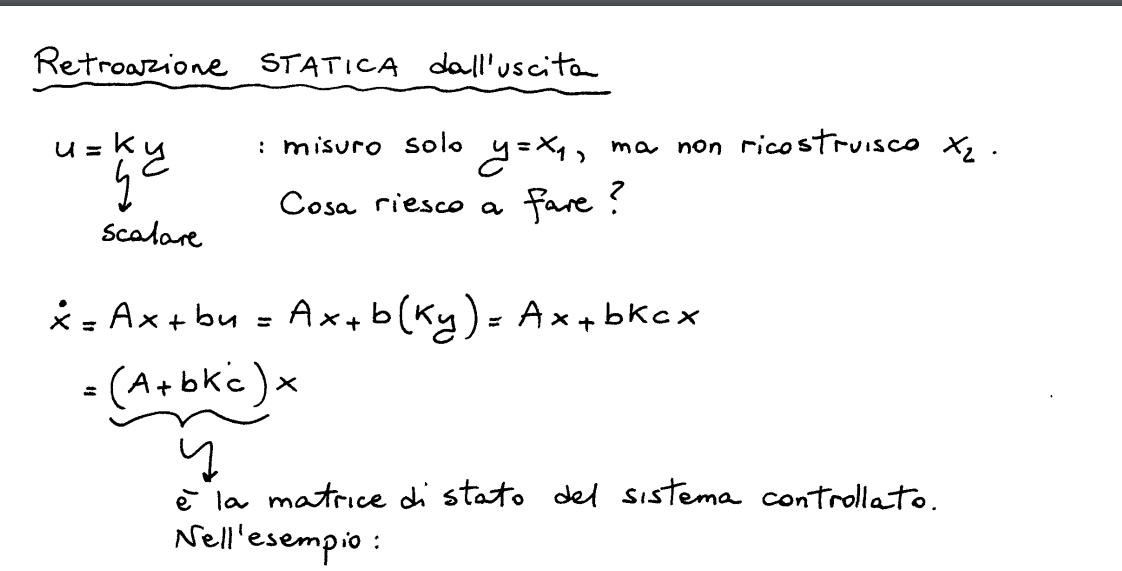 Retroazione STATICA dall'uscita
u = Ky : misuro solo y=x₁, ma non ricostruisco x₂.
Cosa riesco a fare?
scalare
ẋ = Ax + bu = Ax + b(Ky) = Ax + bKcx
= (A + bKc)x
è la matrice di stato del sistema controllato.
Nell'esempio: